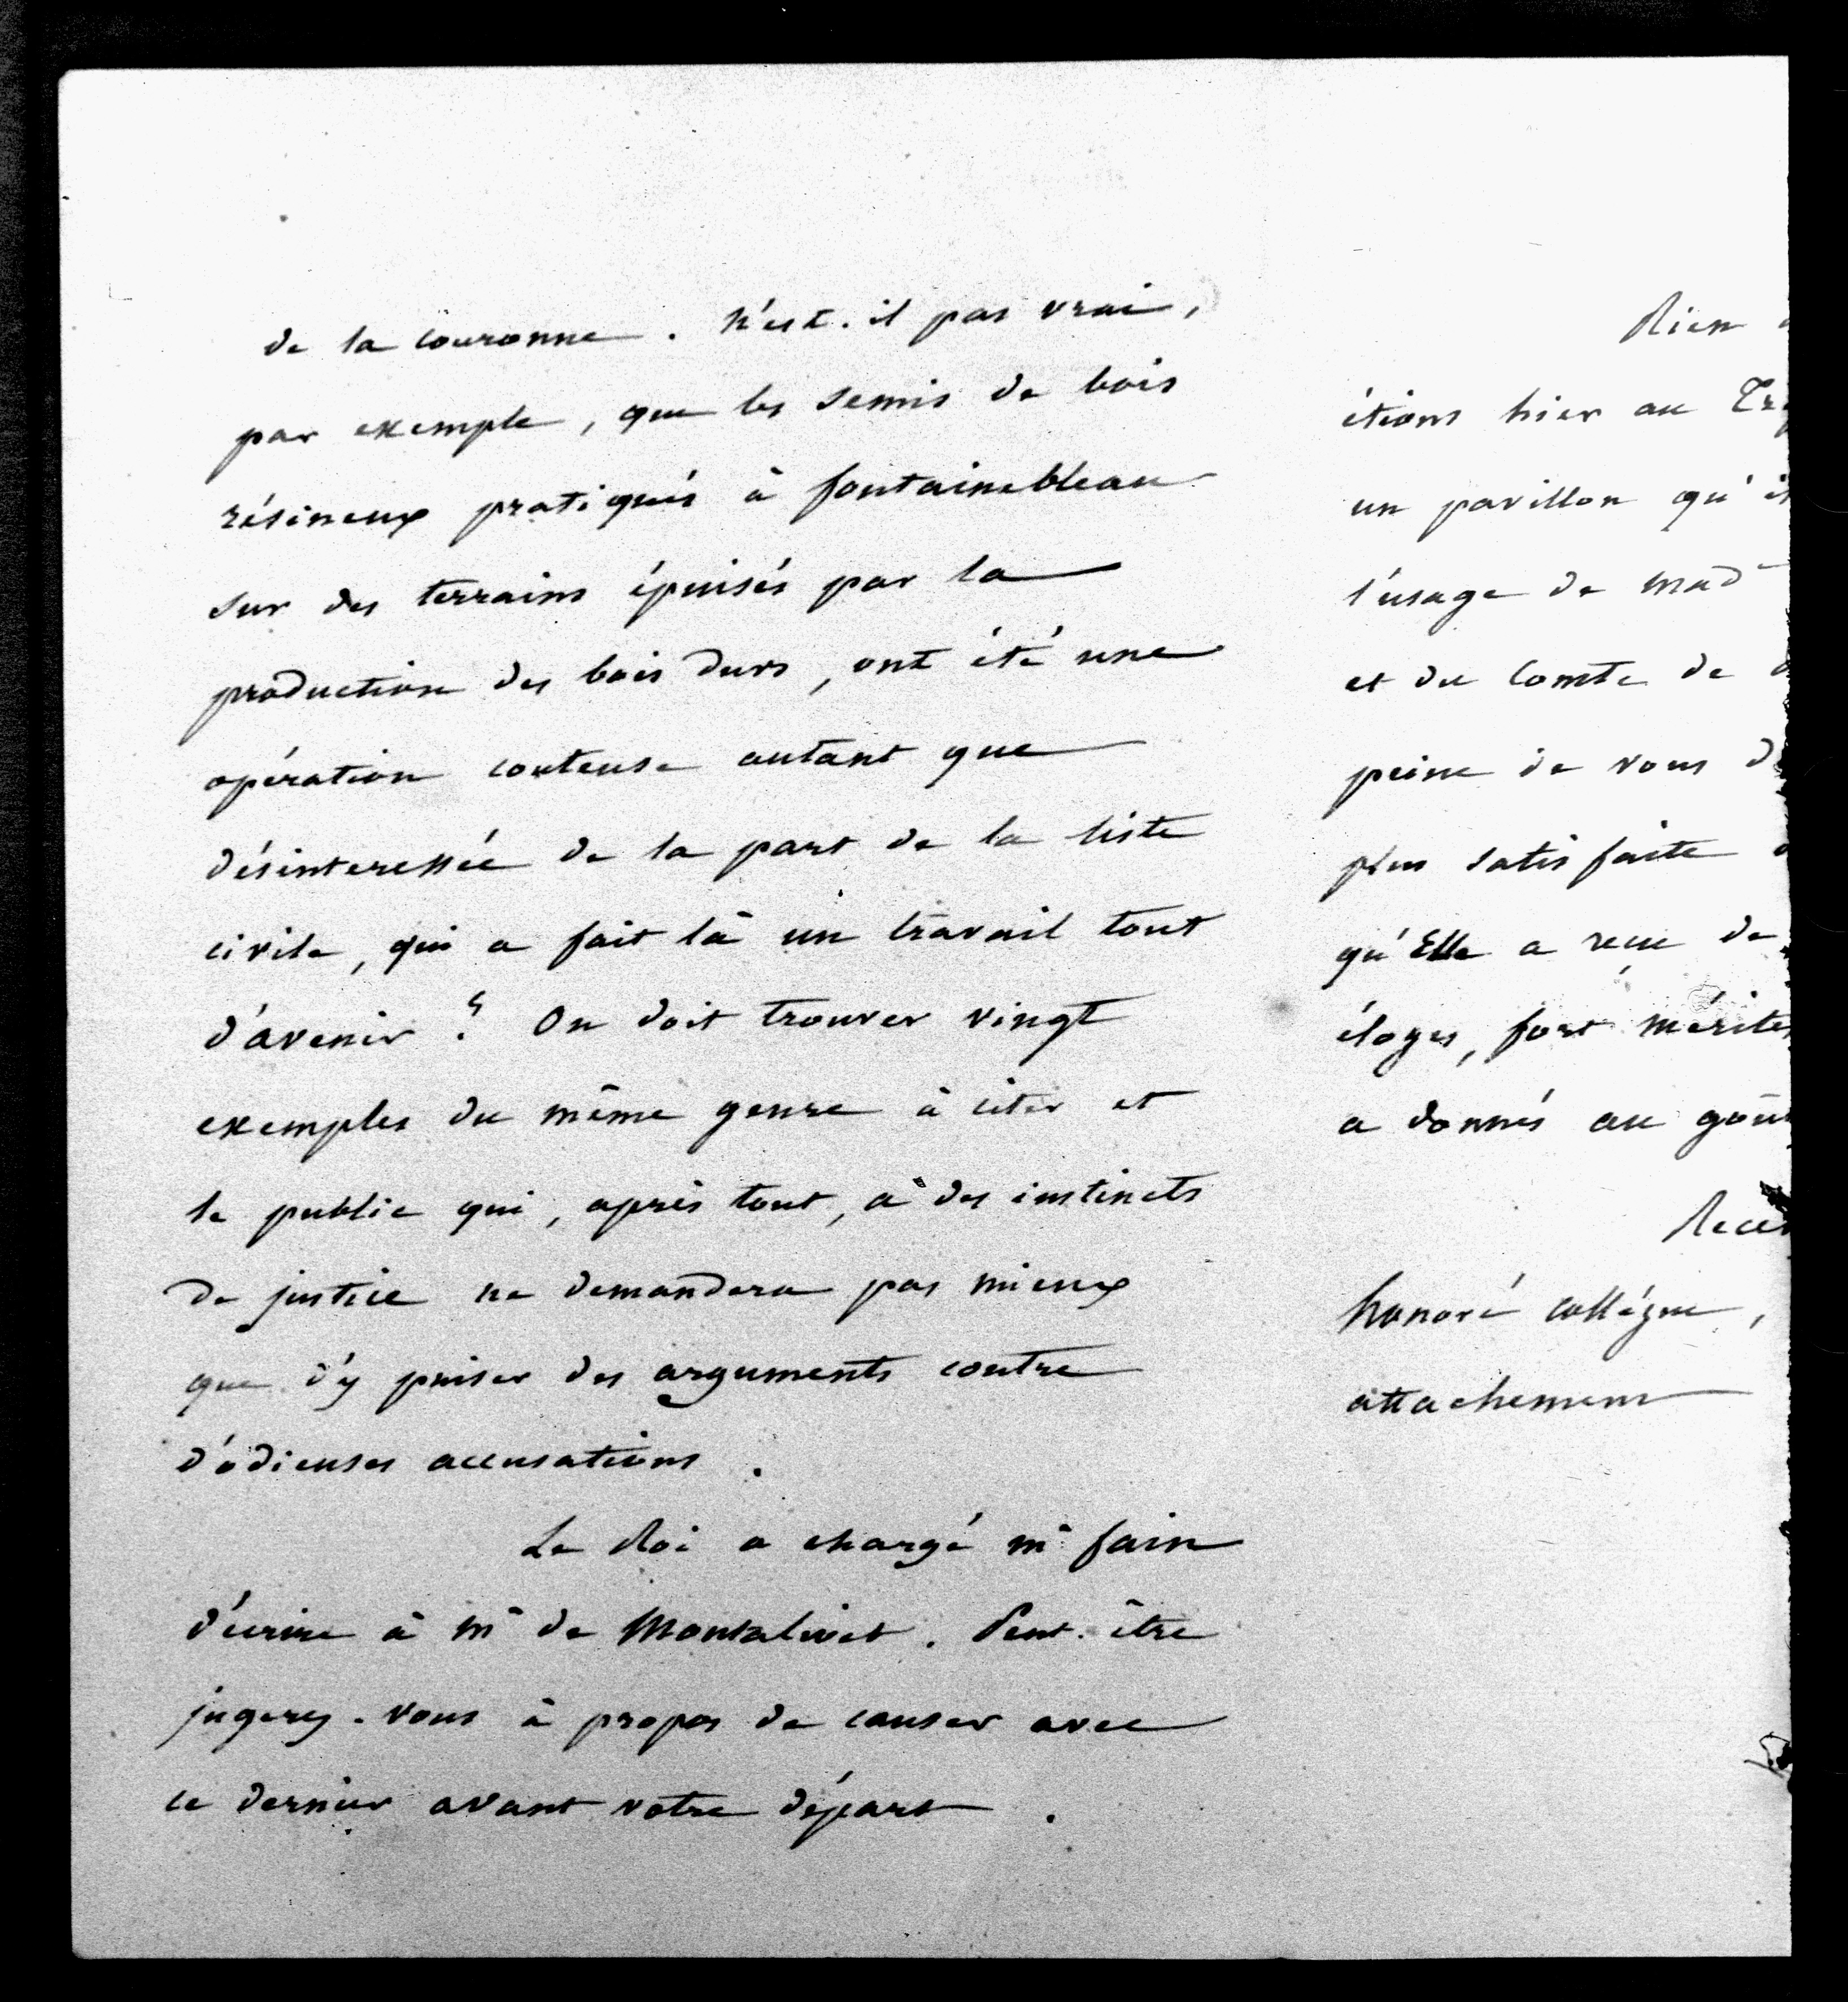 de la couronne. N'est-il pas vrai,
par exemple, que les semis de bois
résineux pratiqués à fontainebleau
sur des terrains épuisés par la
production des bois durs, ont été une
opération couteuse autant que
désinteressée de la part de la liste
civile, qui a fait là un travail tout
d'avenir ? On doit trouver vingt
exemples du même genre à citer et
le public qui, après tout, a des instincts
de justice ne demandera pas mieux
que d'y puiser des arguments contre
d'odieuses accusations.
Le Roi a chargé Mr fain
d'écrire à Mr de Montalivet. Peut-être
jugerez-vous à propos de causer avec
ce dernier avant votre départ.
Rien
étions hier au
un pavillon qu'il
l'usage de Mad
et du Comte de
peine de vous
plus satisfaite
qu'Elle a reçu de
éloges, fort mérités
a donnés au goût
honoré collégue,
attachement